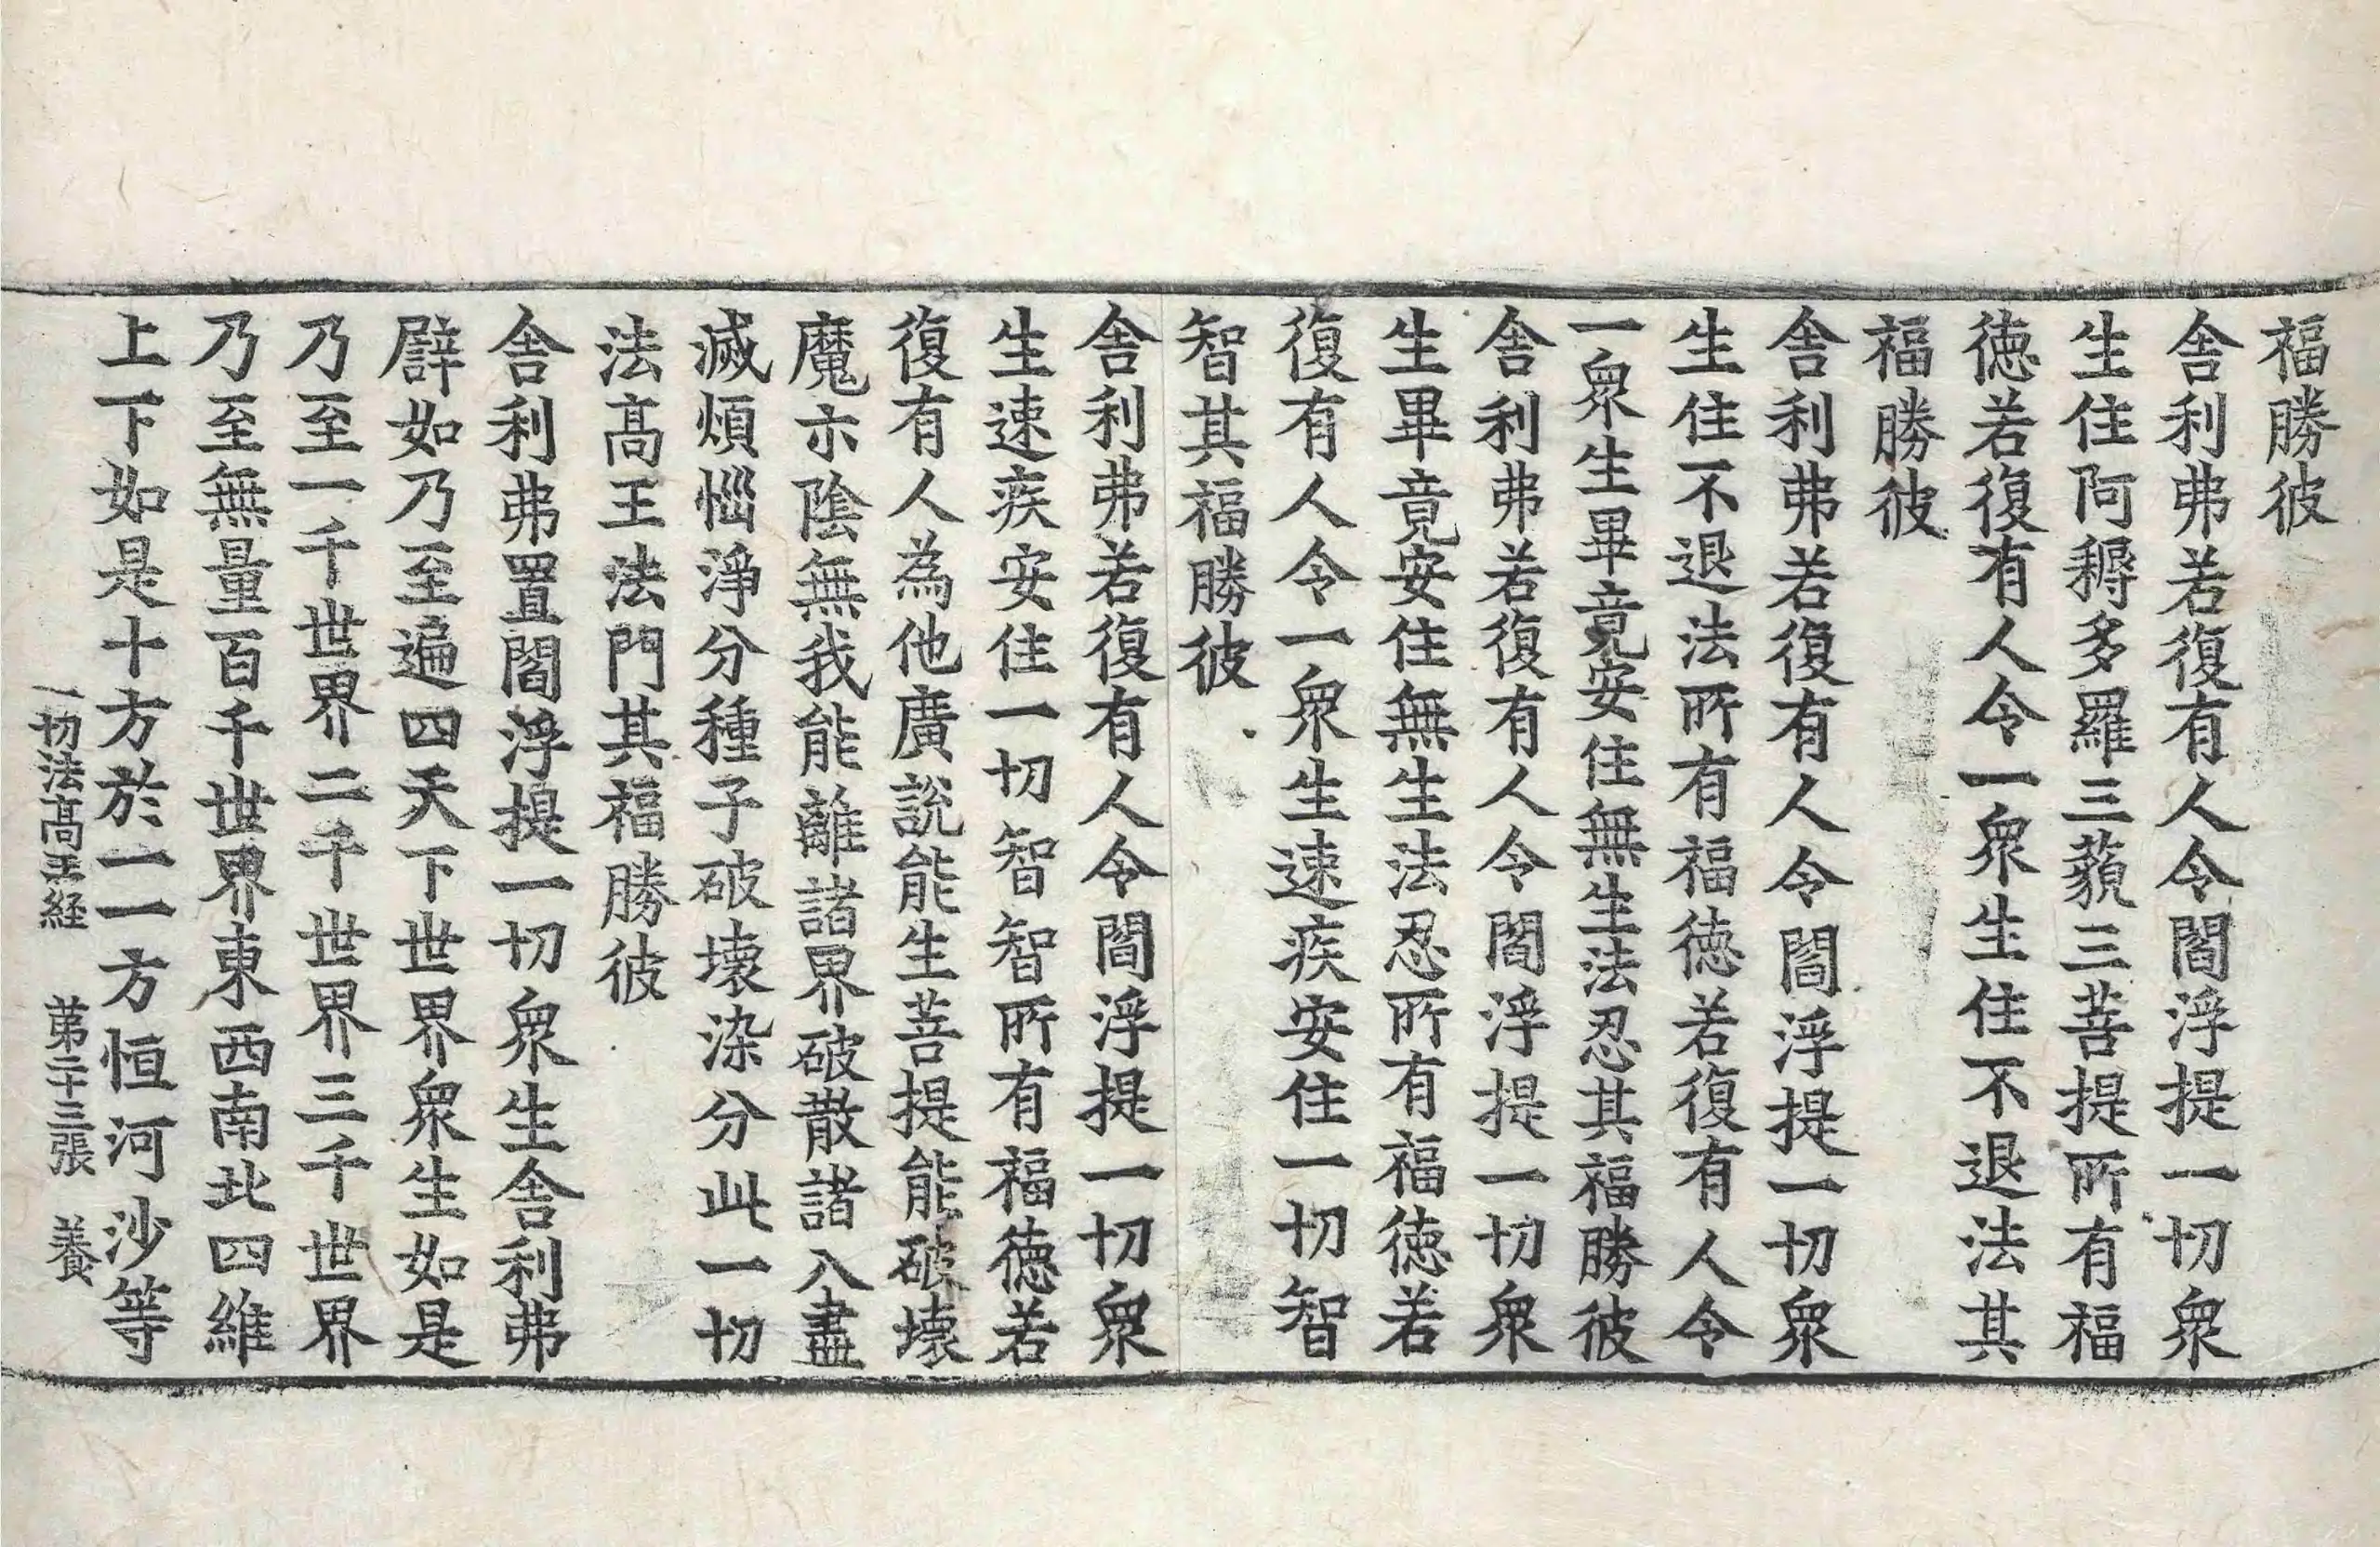 福勝彼
舍利弗若復有人令閻浮提一切衆
生住阿耨多羅三藐三菩提所有福
徳若復有人令一衆生住不退法其
福勝彼
舍利弗若復有人令閻浮提一切衆
生住不退法所有福徳若復有人令
一衆生畢竟安住無生法忍其福勝彼
舍利弗若復有人令閻浮提一切衆
生畢竟安住無生法忍所有福徳若
復有人令一衆生速疾安住一切智
智其福勝彼
舍利弗若復有人令閻浮提一切衆
生速疾安住一切智智所有福德若
復有人為他廣說能生菩提能破壞
魔示陰無我能離諸界破散諸入盡
滅煩惱淨分種子破壞染分此一切
法髙王法門其福勝彼
舍利弗置閻浮提一切衆生舍利弗
譬如乃至遍四天下世界衆生如是
乃至一千世界二千世界三千世界
乃至無量百千世界東西南北四維
上下如是十方於一一方恒河沙等
一切法髙王経 第二十三張 養